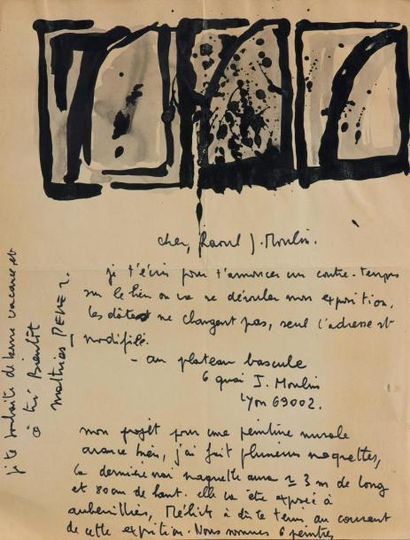 cher, Raoul J. Moulin.
je t'écris pour t'annoncer un contre-temps
sur le lieu ou va se dérouler mon exposition,
les dâtes ne changent pas, seul l'adresse est
modifié.
- au plateau bascule
6 quai J. Moulin
Lyon 69002.
mon projet pour une peinture murale
avance bien, j'ai fait plusieurs maquettes,
la dernière maquette aura 3 m de long
et 80 cm de haut. elle va être exposé à
aubervilliers, à tenir au courant
de cette expition. Nous sommes 6 peintres
je te souhaite de bonne vacance et
à très Bientôt
mathias